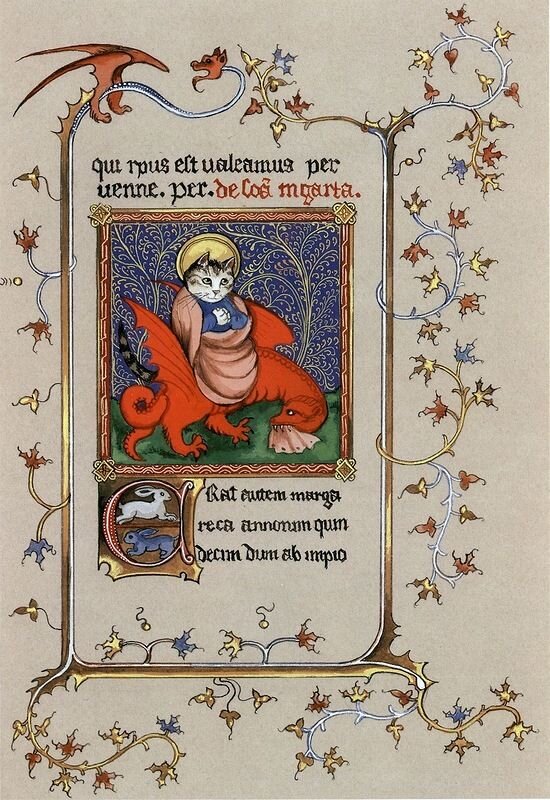 qui rpus est ualeamus per
uenne. per. de scā mgarta.
Rat autem marga
reca annorum quin
decim dum ab impio